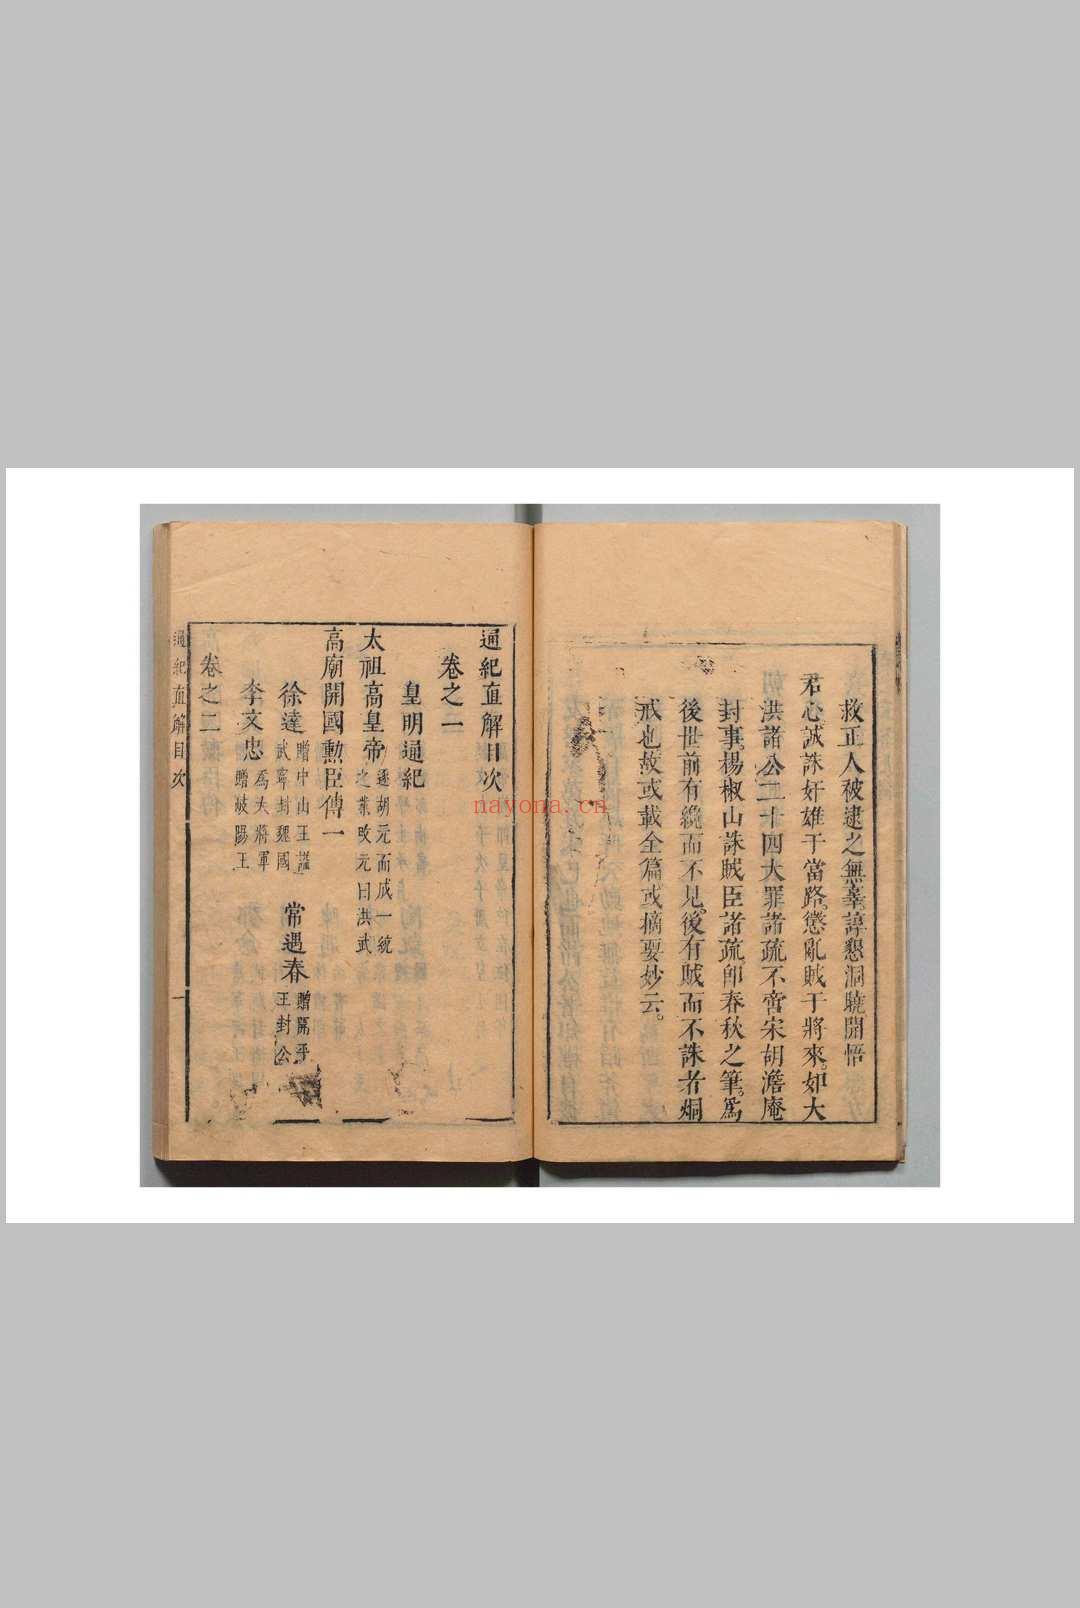 救正人被逮之無辜諄懇洞曉開悟
君心誠誅奸雄于當路。懲亂賊于將來。如大
洪諸公二十四大罪諸疏不啻宋胡澹庵
封事。楊椒山誅賊臣諸疏。即春秋之筆。為
後世前有纔而不見。後有賊而不誅者炯
戒也故或載全篇或摘要妙云。
通紀直解目次
卷之一
皇明通紀
太祖高皇帝 逐胡元而成一統之業改元曰洪武
高廟開國勲臣傳一
徐達 贈中山王謚武寧封魏國 常遇春 贈開平王封公
李文忠 為大將軍贈岐陽王
卷之二
通紀直解目次 一
nayona.cn